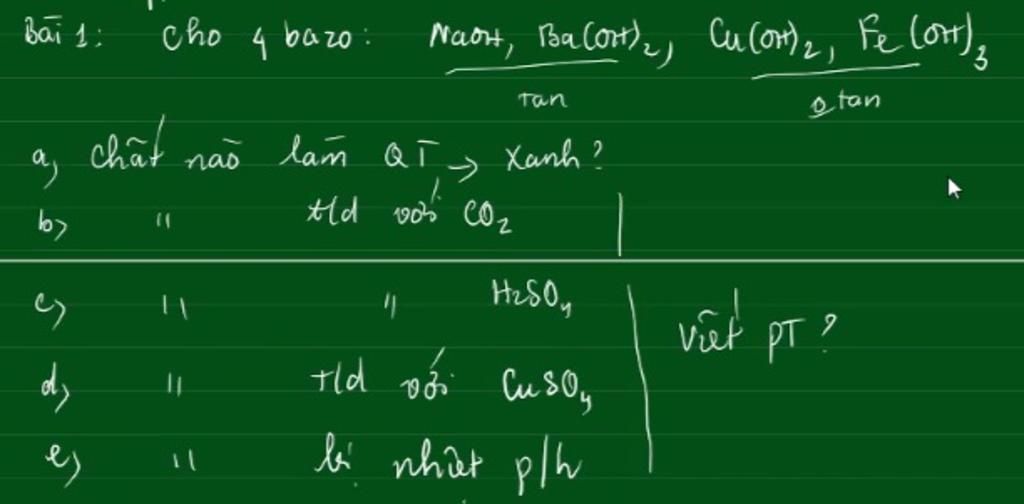 Bài 1: Cho 4 bazơ: NaOH, Ba(OH)2, Cu(OH)2, Fe(OH)3
Tan o tan
a, Chất nào làm QT → xanh?
b, " t/d với CO2
c, " " H2SO4
Viết PT?
d, " t/d với CuSO4
e, " bị nhiệt p/h